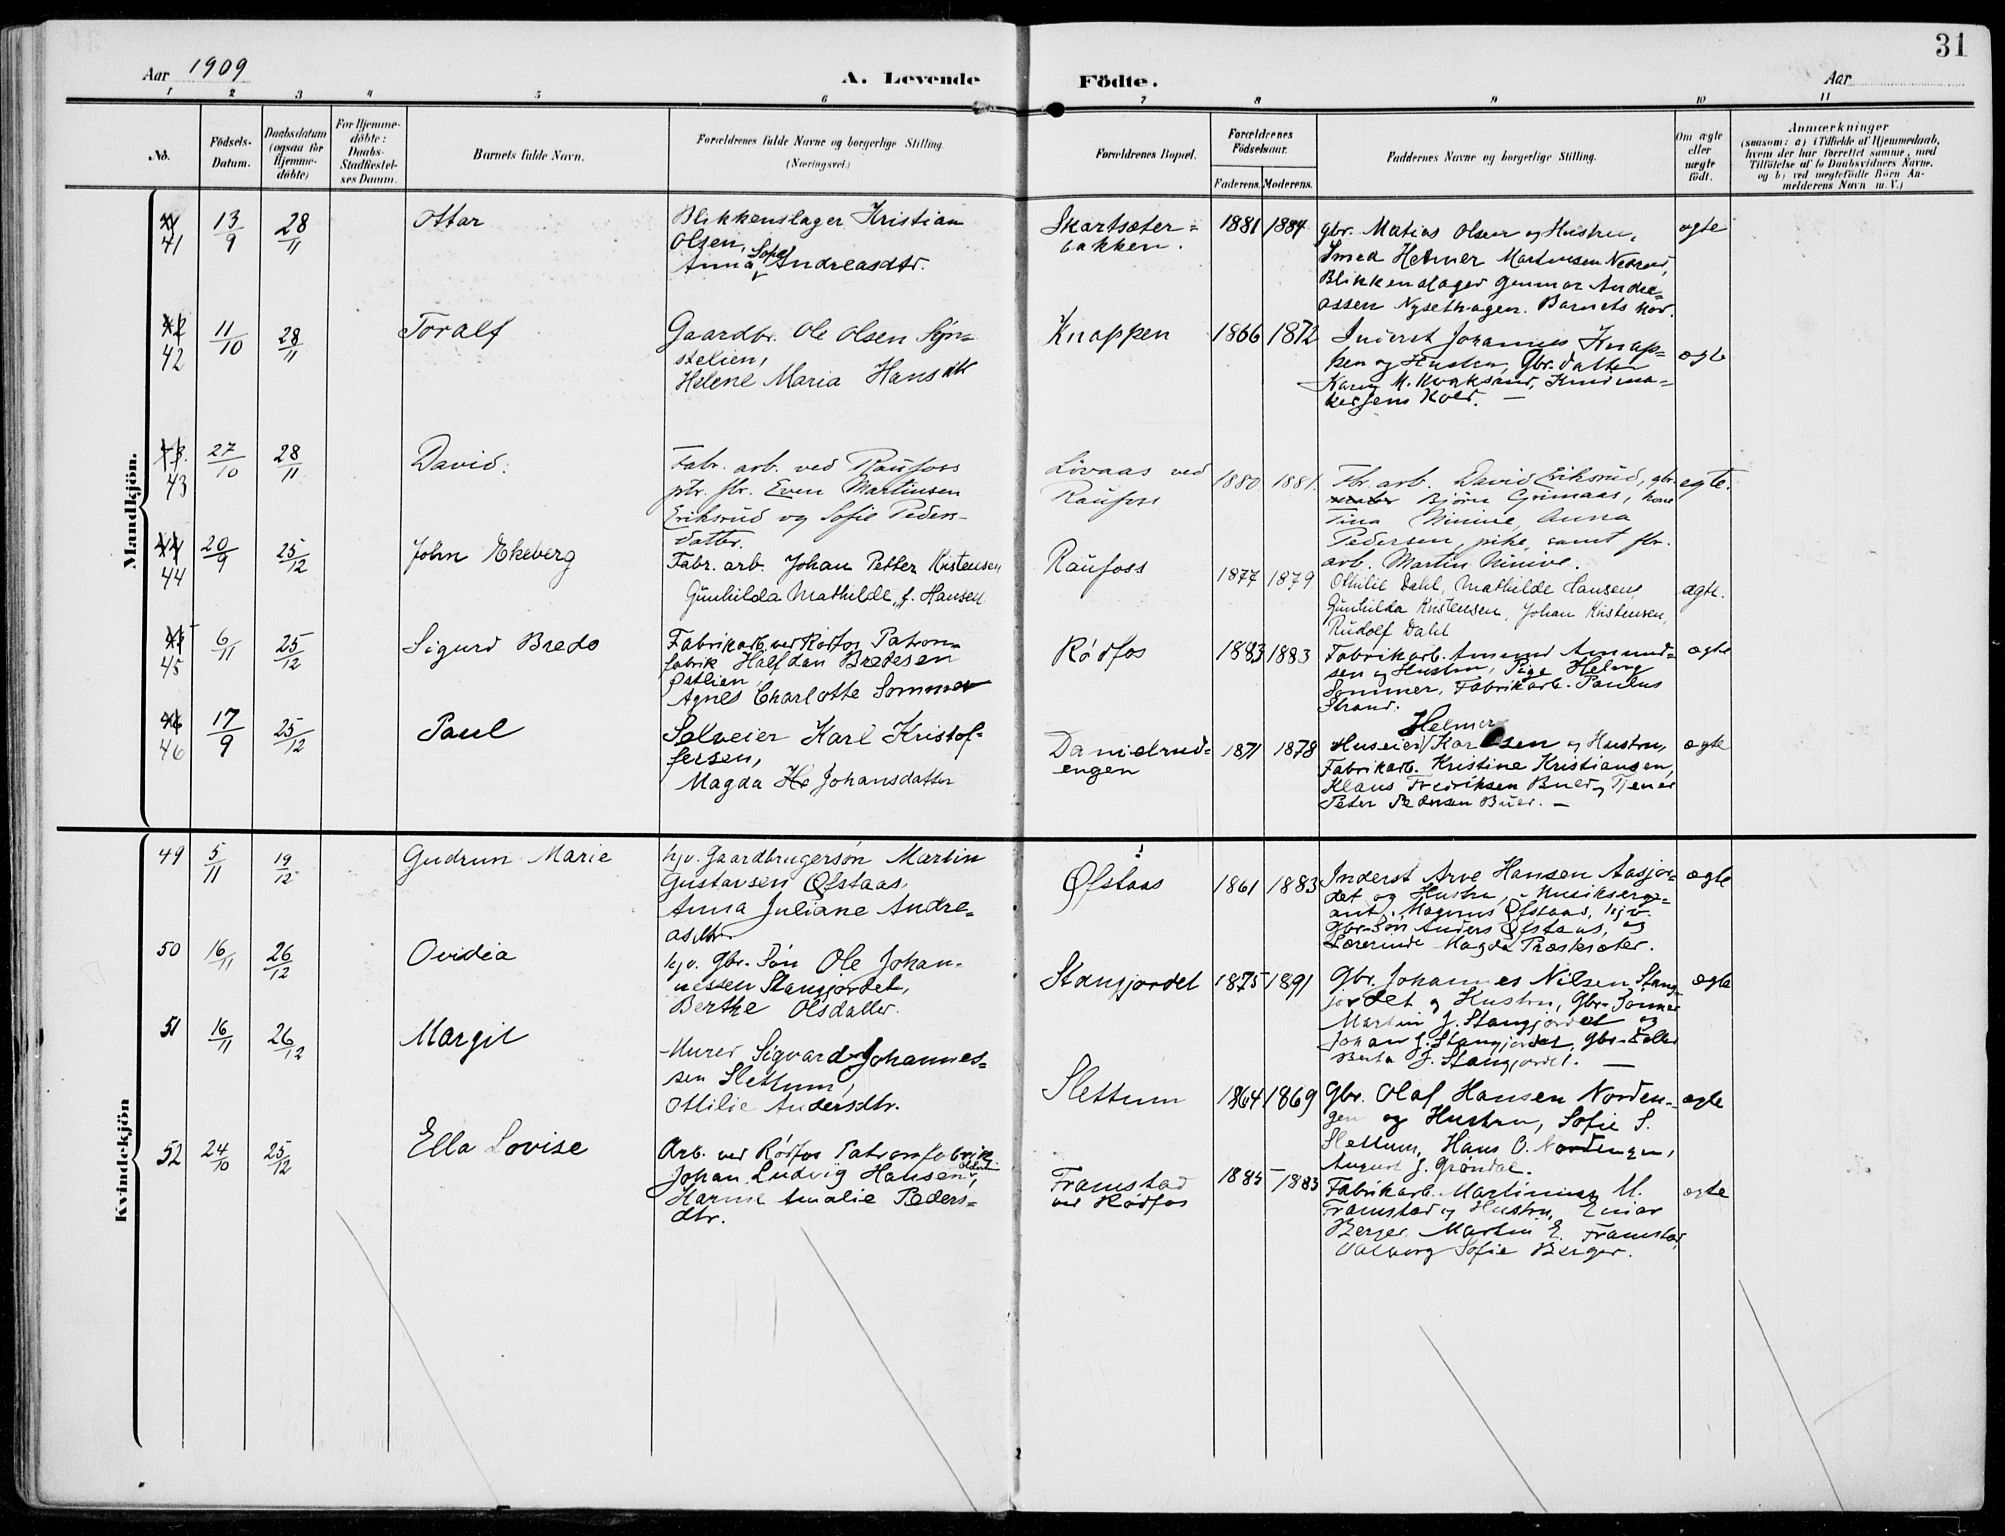 31
Aar 1909
A. Levende
Födte.
Aar
1 2 3 4 5 6 7 8 9 10 11
No.
Födsels-
Datum.
Daabsdatum
(ogsaa for
Hjemme-
döbte)
For Hjemme-
döbte:
Daabs-
Stadfæstel-
ses Datum.
Barnets fulde Navn.
Forældrenes fulde Navne og borgerlige Stilling.
(Næringsvei.)
Forældrenes Bopæl.
Forældrenes
Födselsaar.
Faderens. Moderens.
Faddernes Navne og borgerlige Stilling.
Om ægte
eller
uægte
födt.
Anmærkninger
(saasom: a) i Tilfælde af Hjemmedaab,
hvem der har forrettet samme, med
Tilföielse af to Daabsvidners Navne,
og b) ved uægtefödte Börn An-
melderens Navn m. V.)
Mandkjön.
41
13/9
28/11
Ottar
Blikkenslager Kristian
Olsen,
Sofie
Anna Andreasdtr.
Skartsæter-
bakken.
1881 1884
Gbr. Matias Olsen og Hustru,
Smed Helmer Martinsen
Blikkenslager Gunnar Andre-
assen Nysethagen. Barnets Mor.
ægte
42
11/10
28/11
Toralf
Gaardbr. Ole Olsen Syn-
stelien,
Helene Maria Hansdtr
Knappen
1866 1872
Inderst Johannes Knap-
pen og Hustru, Gbr. datter
Karen M. Kvaksrud,
ægte
43
27/10
28/11
David.
Fabr. arb. ved Raufoss
ptr. fbr. Even Martinsen
Eriksrud og Sofie Peders-
datter.
Lövaas ved
Raufoss
1880 1881.
Fbr. arb. David Eriksrud, gbr.
Björn Grimaas, kone
Tina Ninive, Anna
Pedersen, pike, samt fbr.
arb. Martin Ninive.
egte.
44
20/9
25/12
John Ekeberg
Fabr. arb. Johan Petter Kristensen
Gunhilda Mathilde, f. Hansen
Raufoss
1877 1879
Othilie Dahl, Mathilde Hansen,
Gunhilda Kristensen, Johan Kristensen,
Rudolf Dahl
ægte.
45
6/11
25/12
Sigurd Bredo
Fabrikarb. ved Rødfos Patron-
fabrik Halfdan Bredesen
Østlien,
Agnes Charlotte Sommer
Rødfos
1883 1883
Fabrikarb. Amund Amund-
sen og Hustru, Pige Helga
Sommer, Fabrikarb. Paulus
Strand.
ægte
46
17/9
25/12
Paul
Selveier Karl Kristof-
fersen,
Magda Johansdatter
Danielrud-
engen
1871 1878
Helmer
Huseier Karlsen og Hustru,
Fabrikarb. Kristine Kristiansen,
Klaus Fredriksen Buer, Tjener
Peter Pedersen Buer. —
ægte
Kvindekjön
49
5/11
19/12
Gudrun Marie
hjv. Gaardbrugersøn Martin
Gustavsen Øfstaas,
Anna Juliane Andre-
asdtr.
Øfstaas
1861 1883
Inderst Arve Hansen Aasjor-
det og Hustru, Musikserge-
ant Magnus Øfstaas, hjv.
Gbr.-Søn Anders Øfstaas, og
Lærerinde Magda Præstsæter.
ægte
50
16/11
26/12
Ovidia
hjv. Gbr.-Søn Ole Johan-
nessen Stangjordet,
Berthe Olsdatter.
Stangjordet
1875 1891
Gbr. Johannes Nilsen Stang-
jordet og Hustru, Gbr-Sønner
Martin J. Stangjordet og
Johan J. Stangjordet, Gbr-datter
Berta J. Stangjordet. —
ægte
51
16/11
26/12
Margit
Murer Sigvard Johannes-
sen Slettum,
Ottilie Andersdtr.
Slettum
1864 1869
Gbr. Olaf Hansen Norden-
gen og Hustru, Sofie S.
Slettum, Hans O. Nordengen,
August J. Grøndal.
ægte
52
24/10
25/12
Ella Lovise
Arb. ved Rødfos Patronfabrik
Johan Ludvig Hansen,
Karine Amalie Peders-
dtr.
Framstad
ved Rødfos
1885 1883
Fabrikarb. Martinius M.
Framstad og Hustru, Einar
Berger, Martin E. Framstad,
Valborg Sofie Berger.
ægte